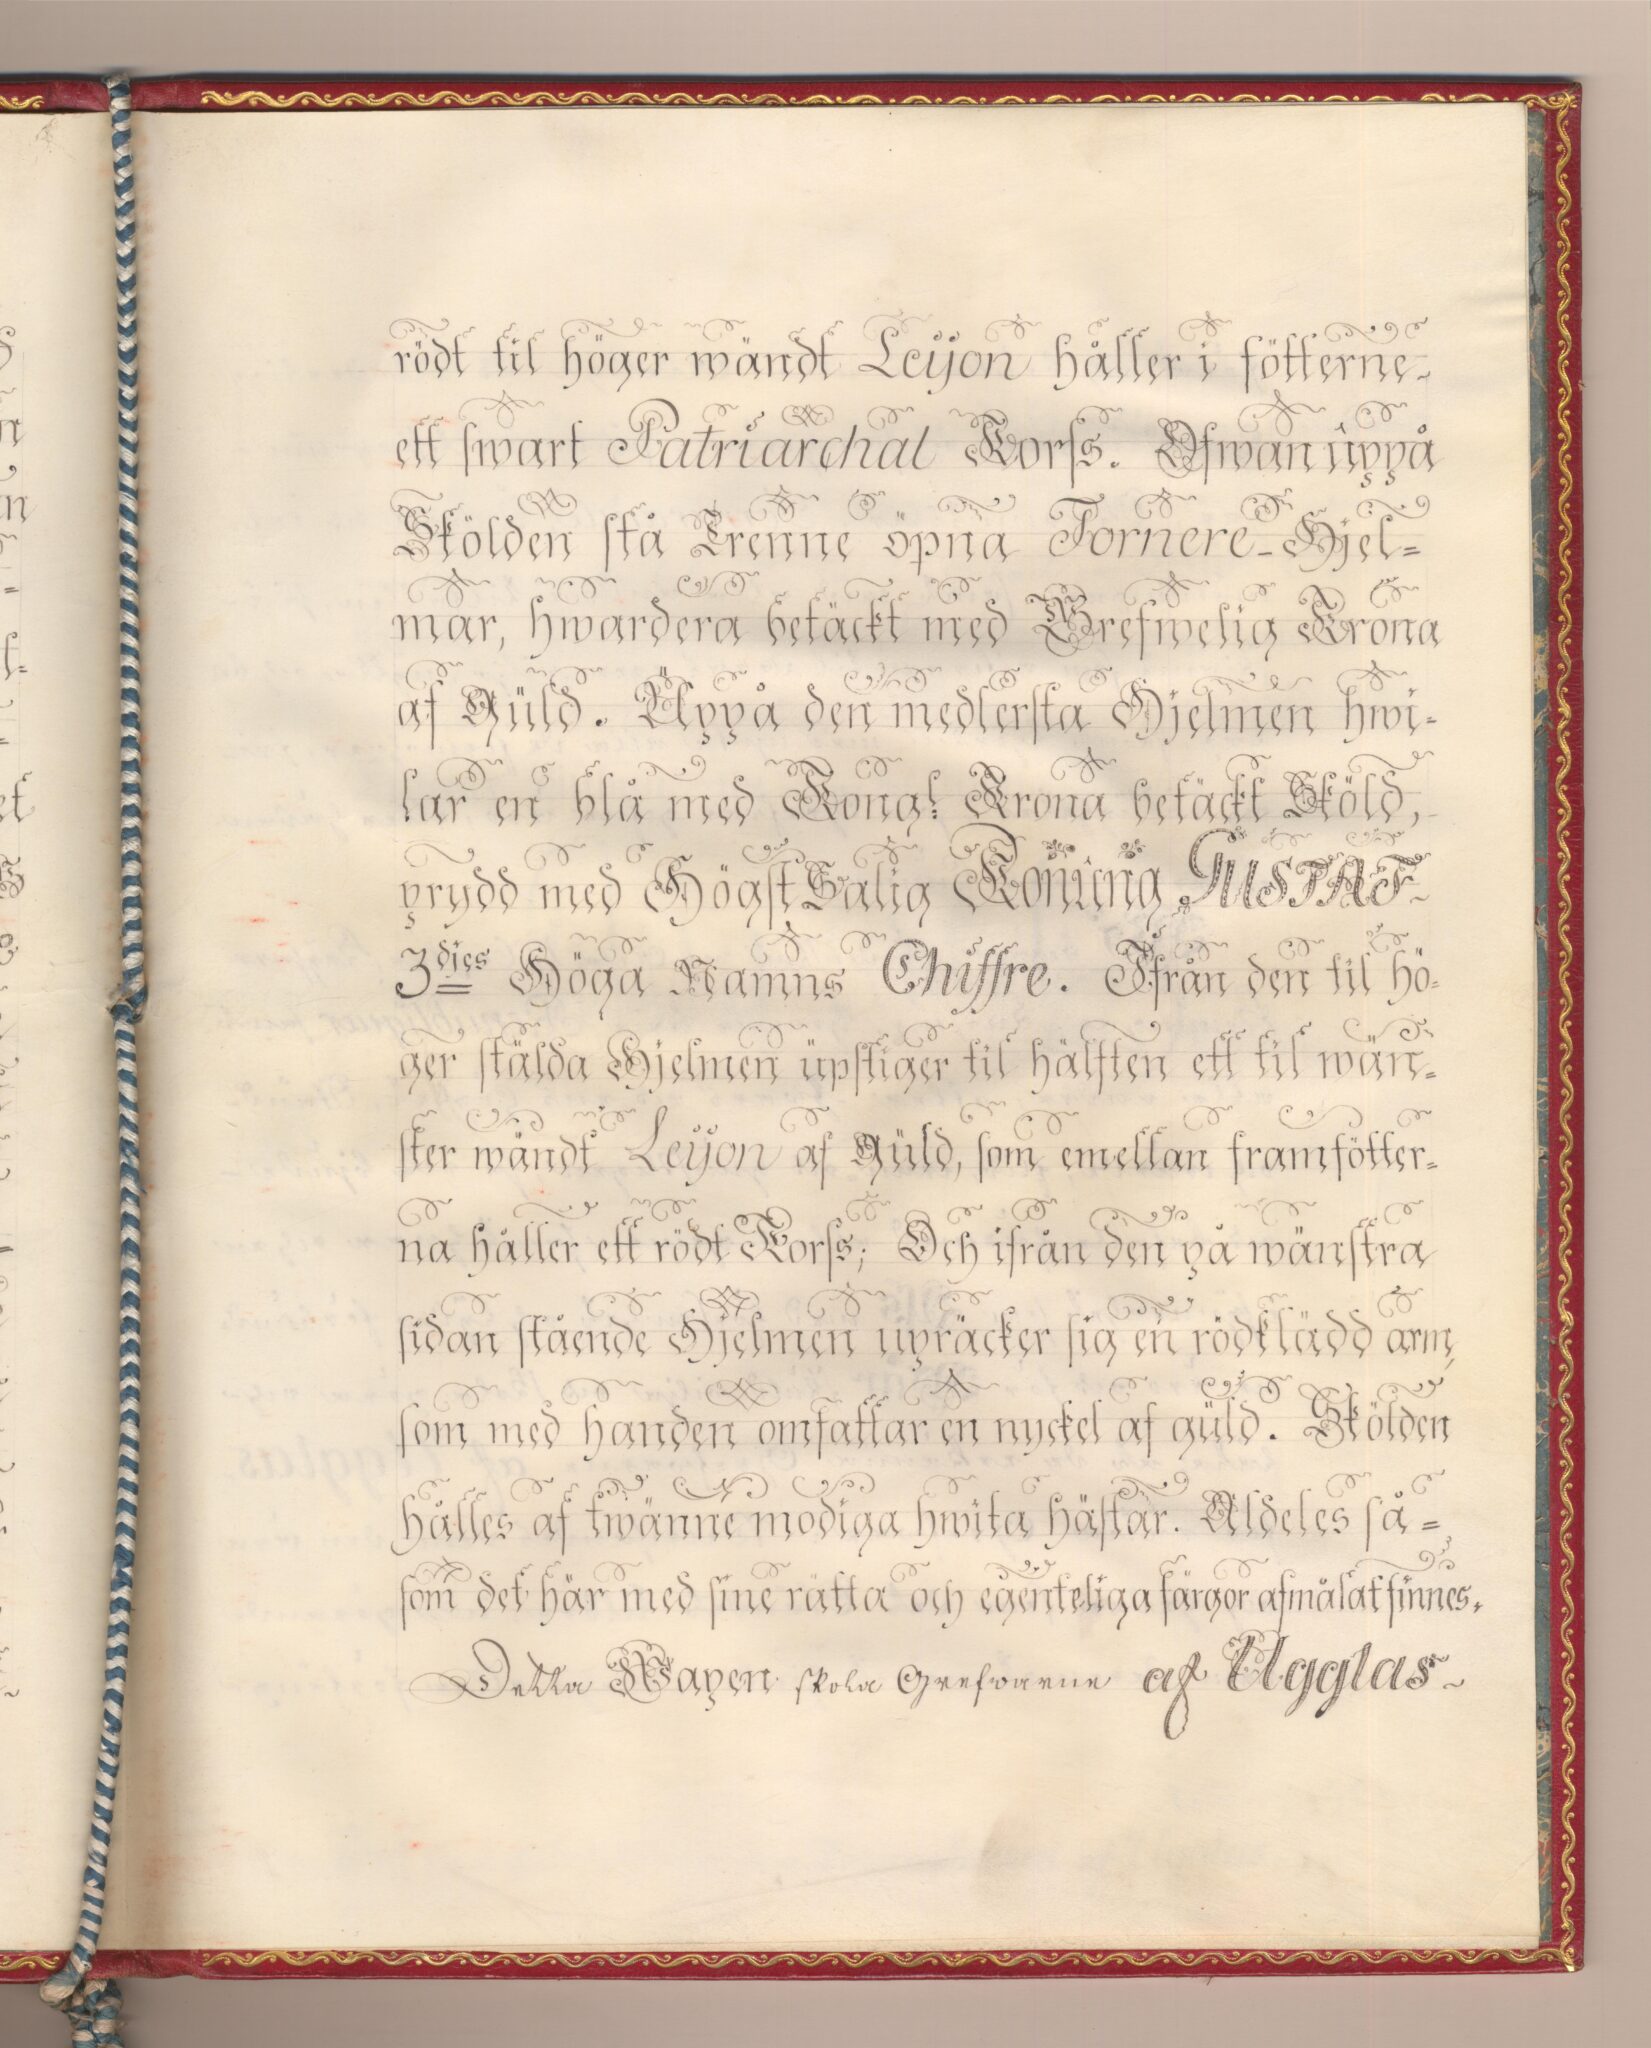 rödt til höger wändt Leijon håller i fötterne
ett swart Patriarchal Korss. Ofwan uppå
Skölden stå Trenne öpna Tornere-Hjel=
mar, hwardera betäckt med Grefwelig Krona
af Guld. Uppå den medlersta Hjelmen hwi-
lar en blå med Kongl. Krona betäckt Sköld,
prydd med Högst Salig Konung GUSTAF
3dies Höga Namns Chiffre. Ifrån den til hö-
ger stälda Hjelmen upstiger til hälften ett til wän-
ster wändt Leijon af Guld, som emellan framfötter-
na håller ett rödt Korss; Och ifrån den på wänstra
sidan stående Hjelmen upräcker sig en rödklädd arm,
som med handen omfattar en nyckel af guld. Skölden
hålles af twänne modiga hwita hästar. Aldeles så=
som det här med sine rätta och egenteliga färgor afmålat finnes.
Detta Wapen skola Grefwarne af Ugglas